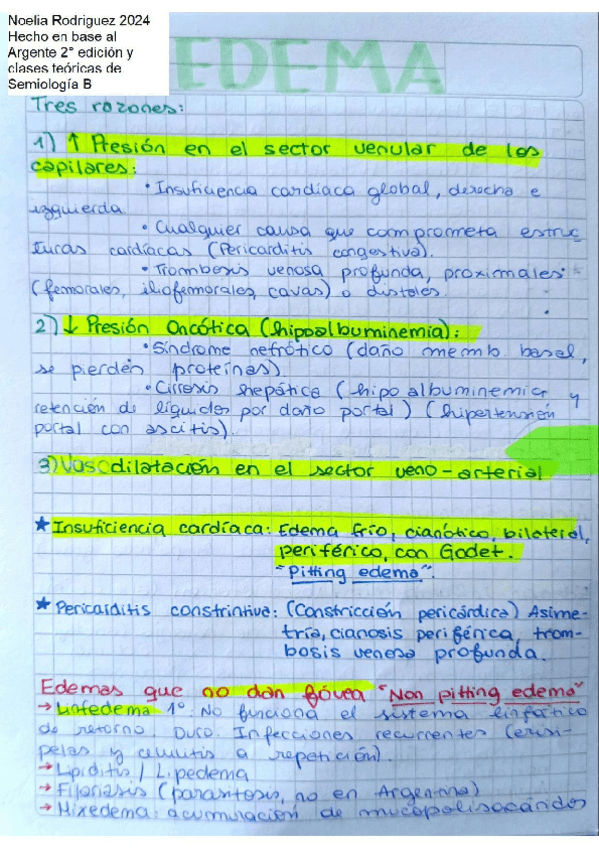 Noelia Rodriguez 2024
Hecho en base al
Argente 2° edición y
clases teóricas de
Semiología B
EDEMA
Tres razones:
1) ↑ Presión en el sector venular de los
capilares:
• Insuficiencia cardíaca global, derecha e
izquierda.
• Cualquier causa que comprometa estruc
turas cardíacas (Pericarditis congestiva).
• Trombosis venosa profunda, proximales
(femorales, iliofemorales, cavas) o distales.
2) ↓ Presión Oncótica (hipoalbuminemia):
• Síndrome nefrótico (daño memb basal,
se pierden proteínas).
• Cirrosis hepática (hipoalbuminemia y
retención de líquidos por daño portal) (hipertensión
portal con ascitis).
3) Vasodilatación en el sector veno-arterial
★ Insuficiencia cardíaca: Edema frío, cianótico, bilateral,
periférico, con Godet.
"Pitting edema".
★ Pericarditis constrintiva: (Constricción pericárdica) Asime
tría, cianosis periférica, trom-
bosis venosa profunda.
Edemas que no dan fóvea "Non pitting edema"
→ Linfedema 1º. No funciona el sistema linfático
de retorno. Duro. Infecciones recurrentes (erisi-
pelas y celulitis a repetición).
→ Lipiditis / Lipedema
→ Filariasis (parasitosis, no en Argentina)
→ Mixedema: acumulación de mucopolisacáridos